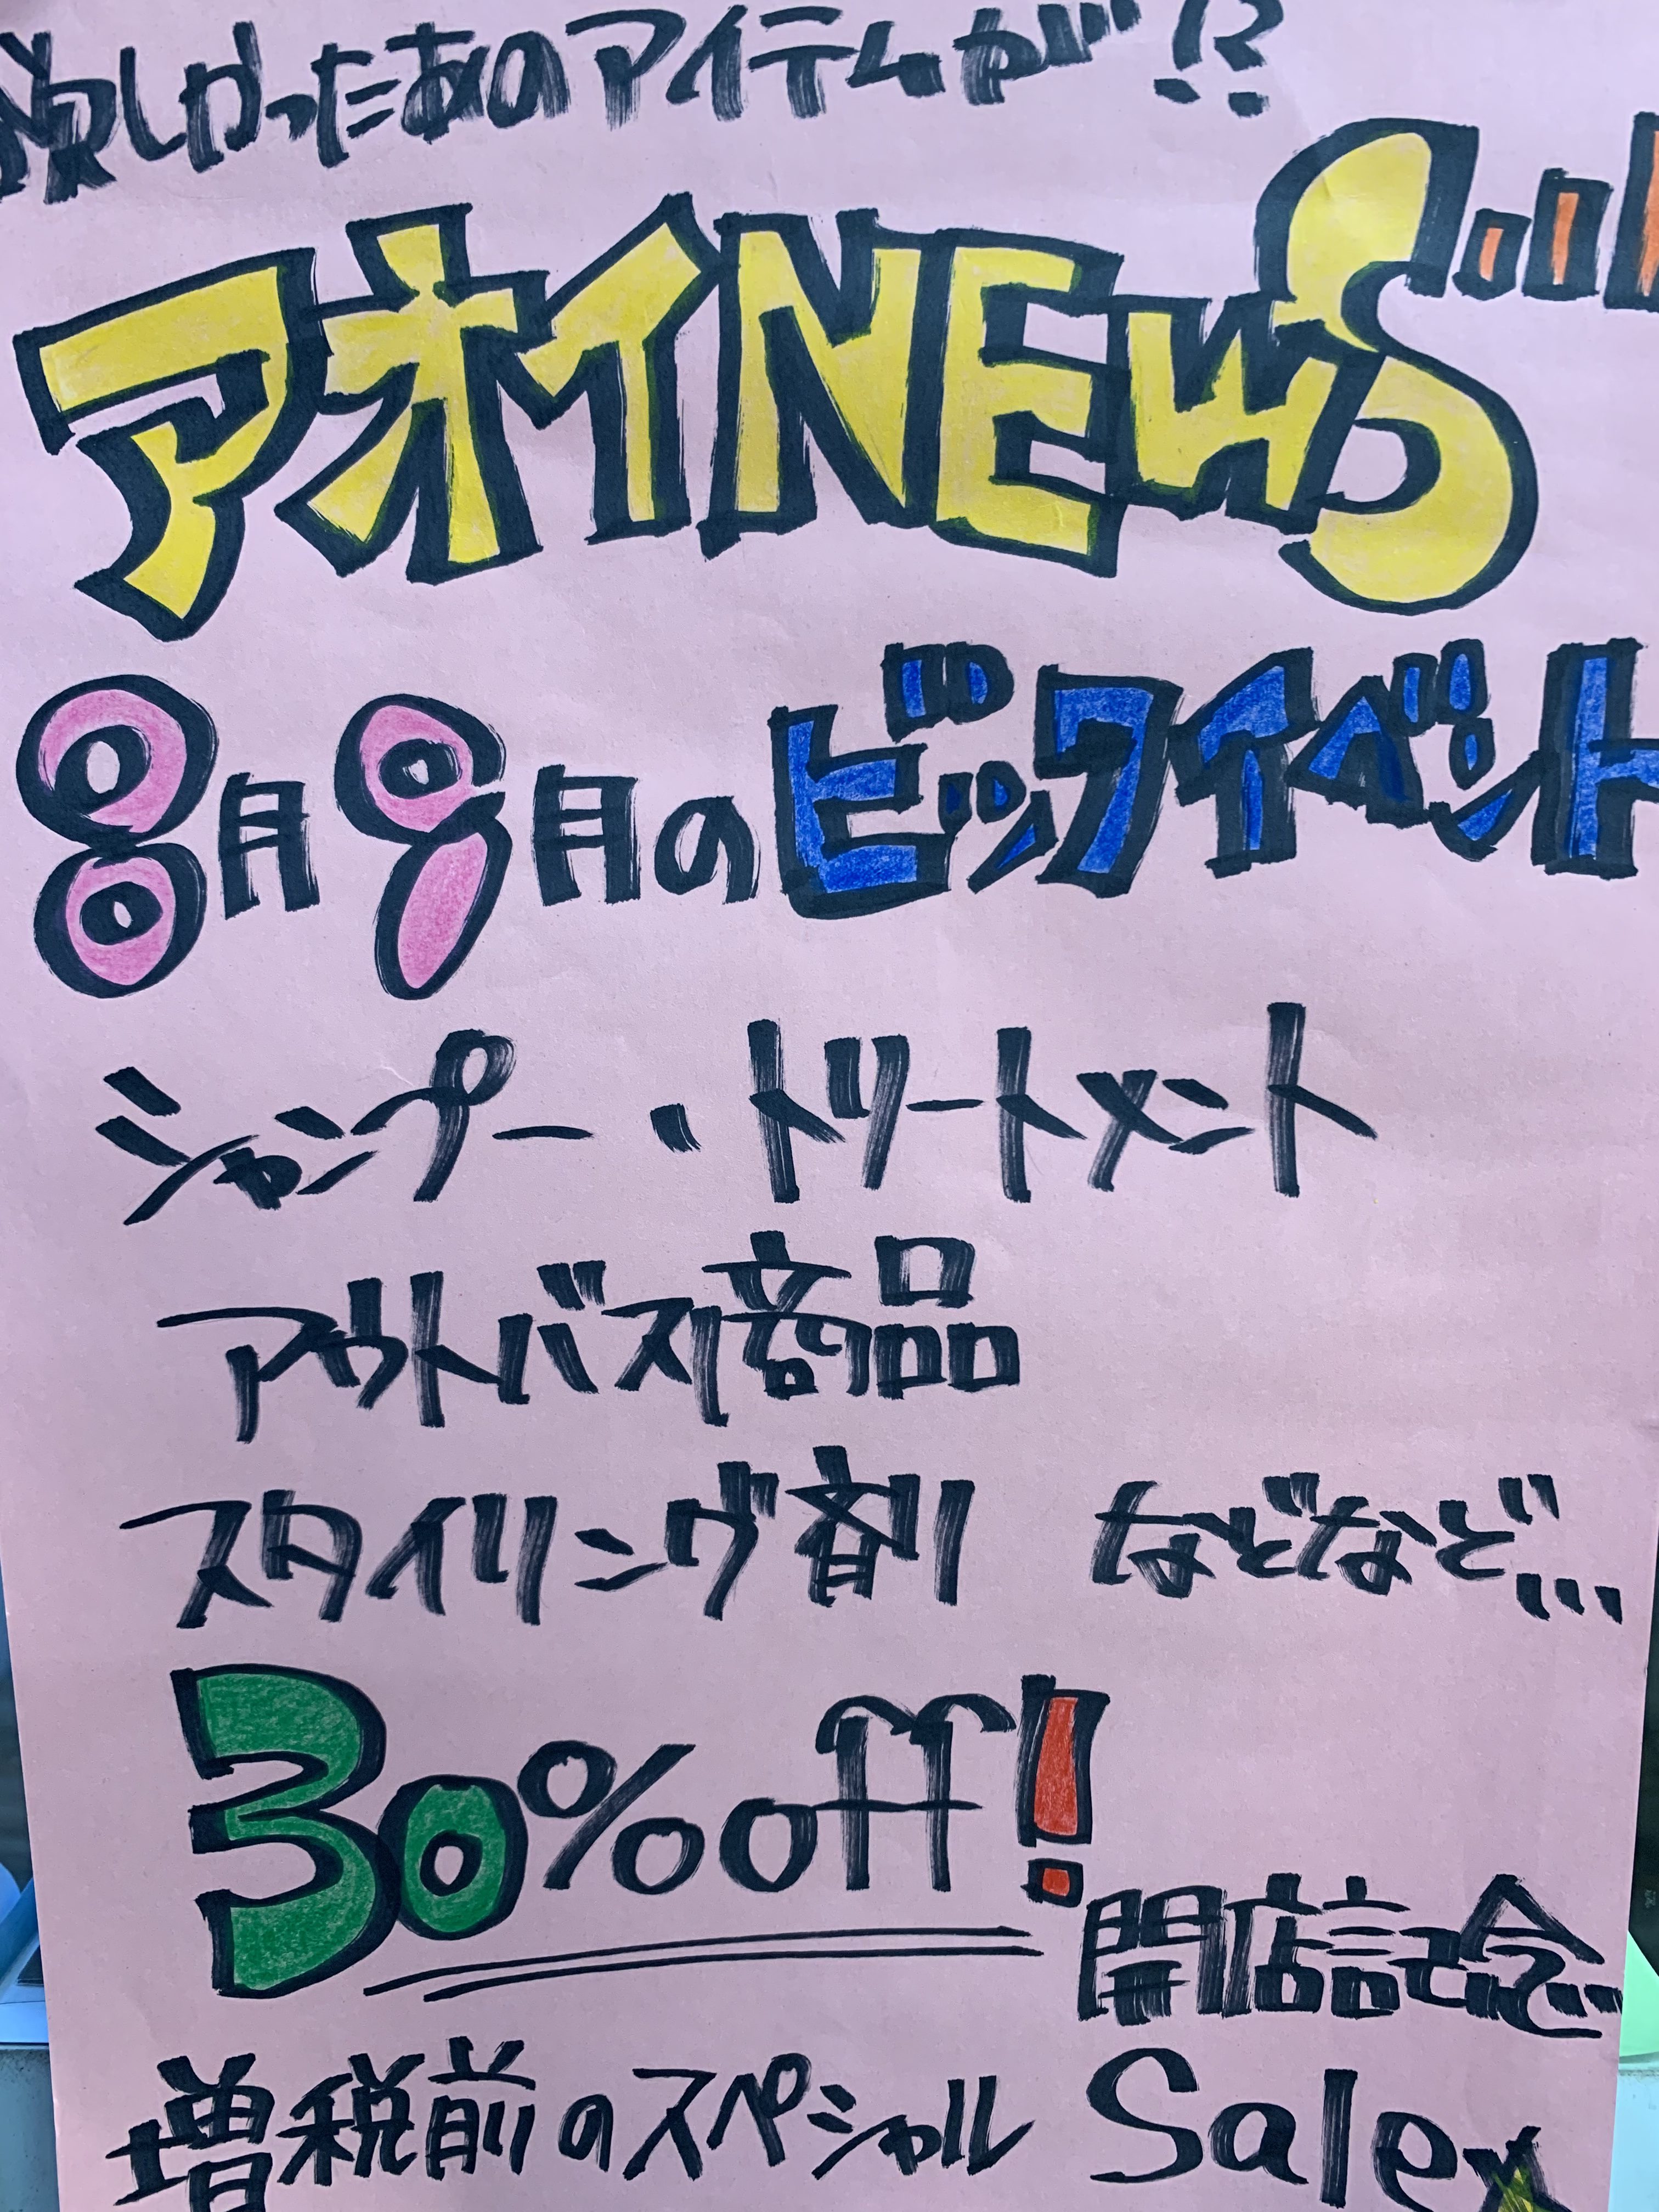 欲しかったあのアイテムが!?
アオイNEWS!!!
8月9月のビックイベント
シャンプー・トリートメント
アウトバス商品
スタイリング剤 などなど...
30%off!
開店記念
増税前のスペシャル Sale